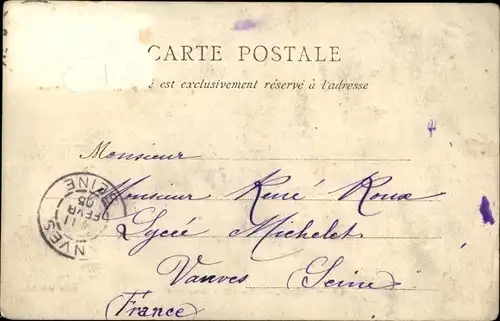 CARTE POSTALE
é est exclusivement réservé à l'adresse
Monsieur
Monsieur René Roux
Lycée Michelet
Vanves (Seine)
(France)
NVES
EINE
FEVR
05